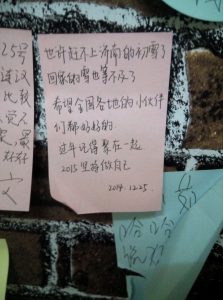 也许赶不上济南的初雪了
回家的雪也等不及了
希望全国各地的小伙伴
们都好好的
过年记得聚在一起
2015坚持做自己
2014.12.25
25号
建议
比较